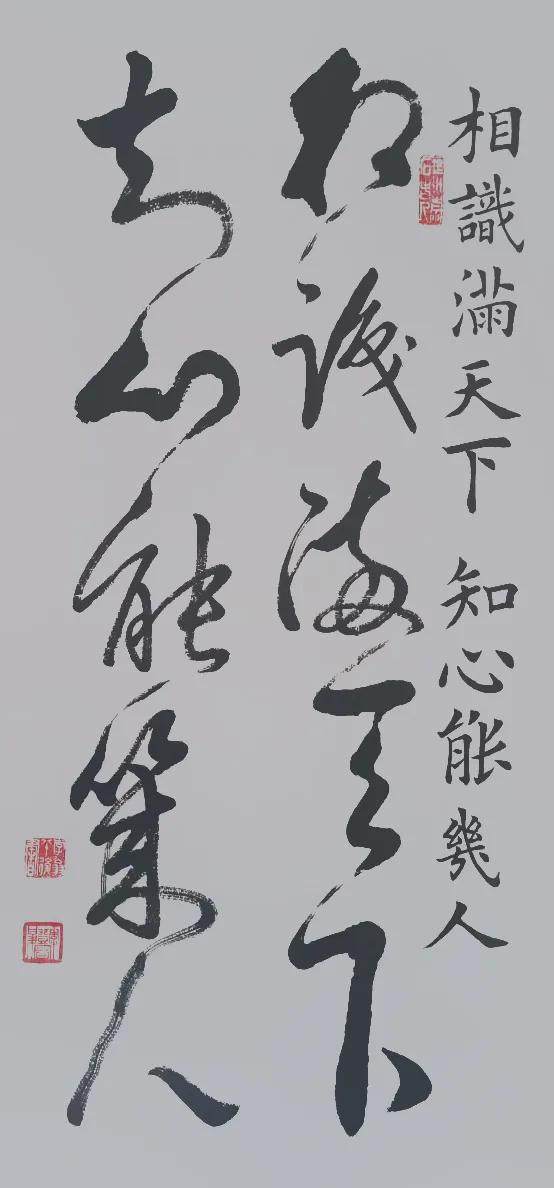 相識滿天下 知心能幾人
相識滿天下
知心能幾人